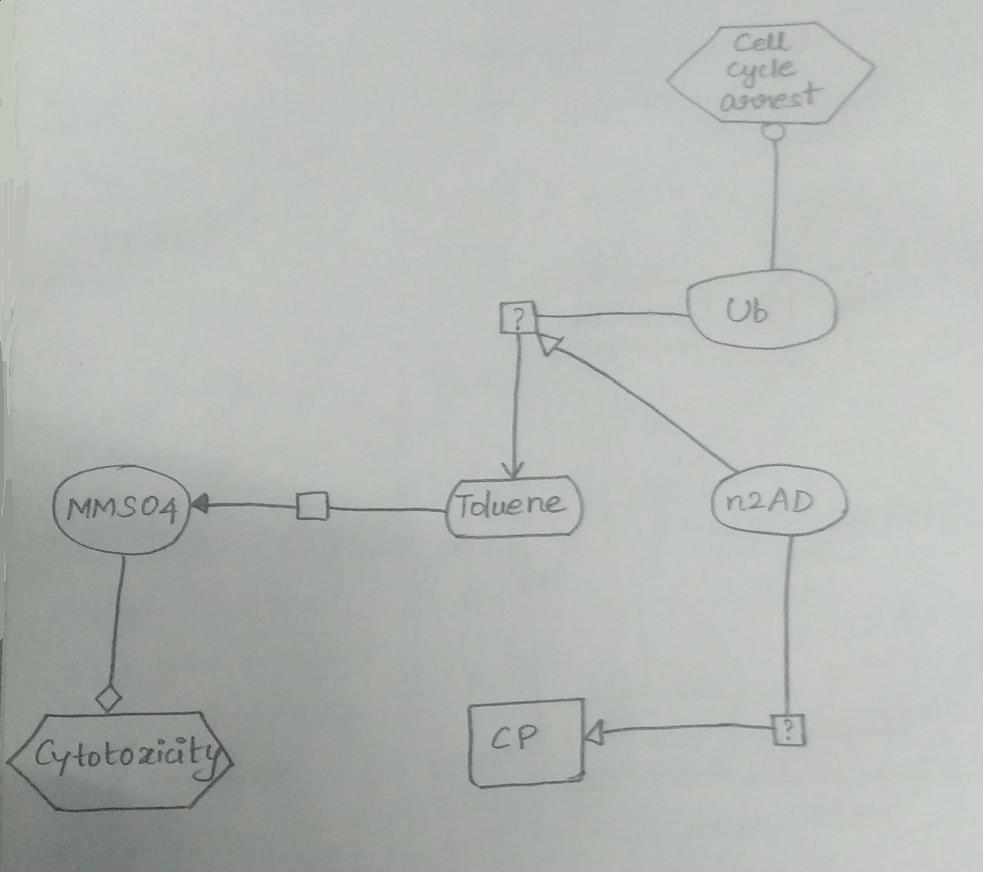 Cell
cycle
arrest
?
Ub
MMSO4
Toluene
n2AD
CP
?
Cytotoxicity